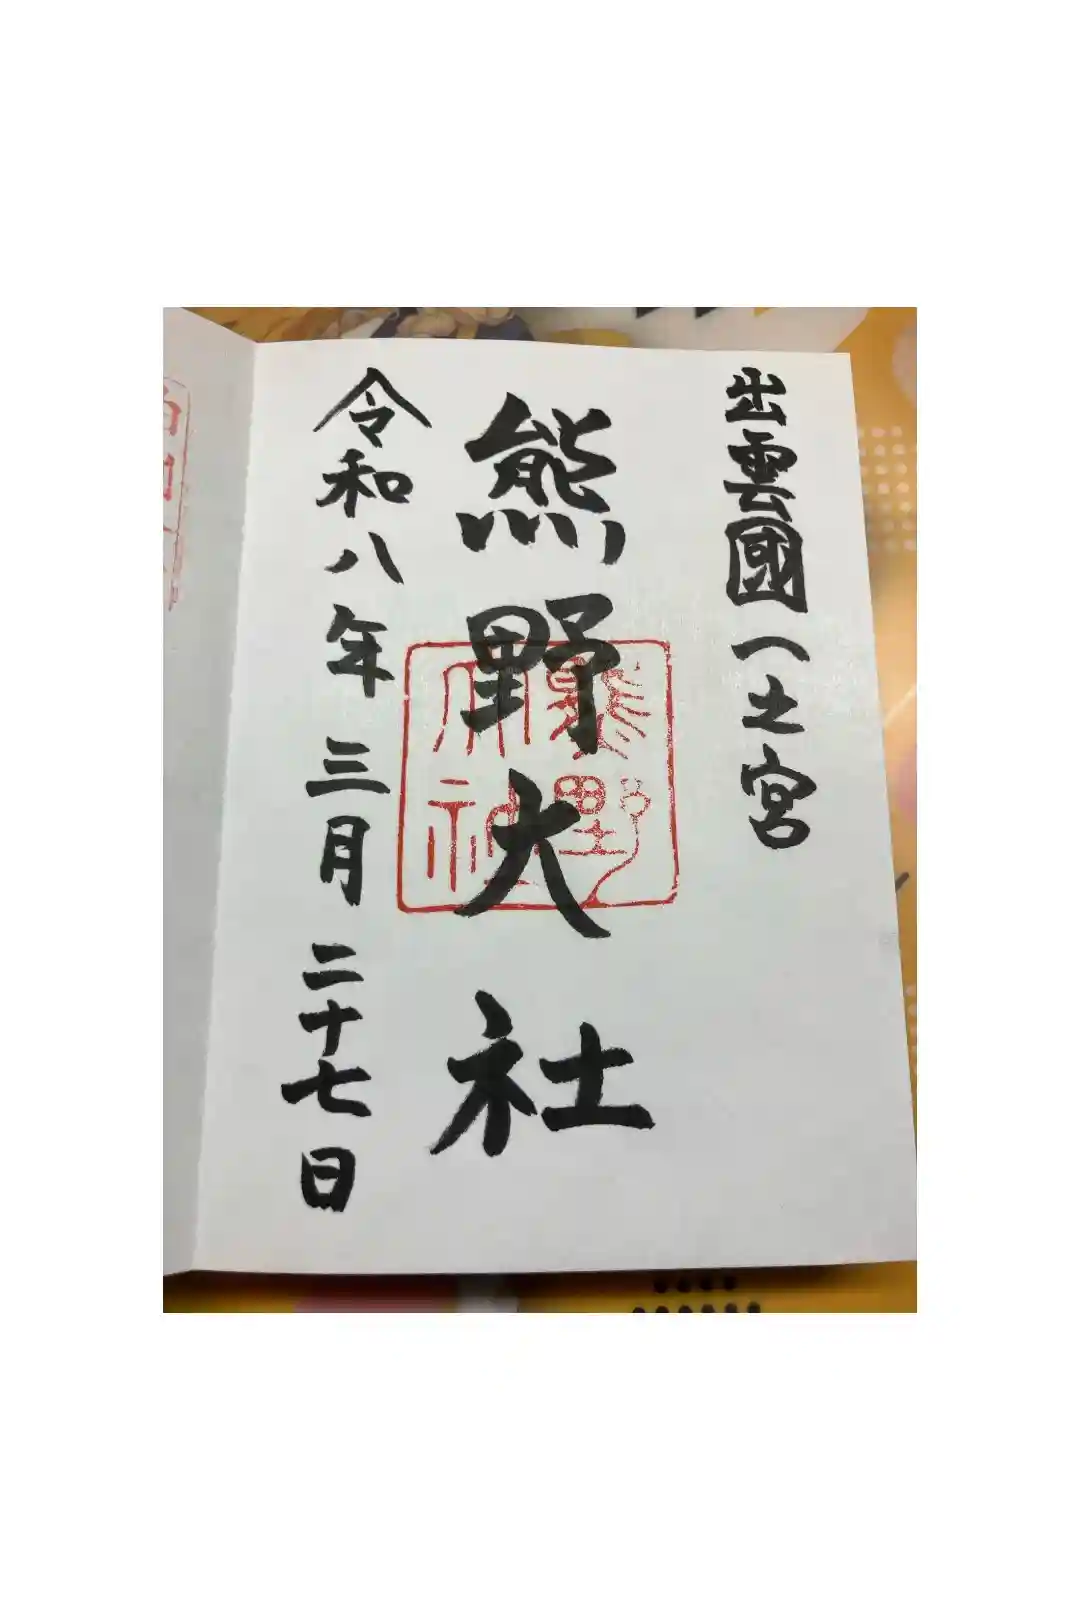 出雲國一之宮
熊野大社
熊野
大社
令和八年三月二十七日